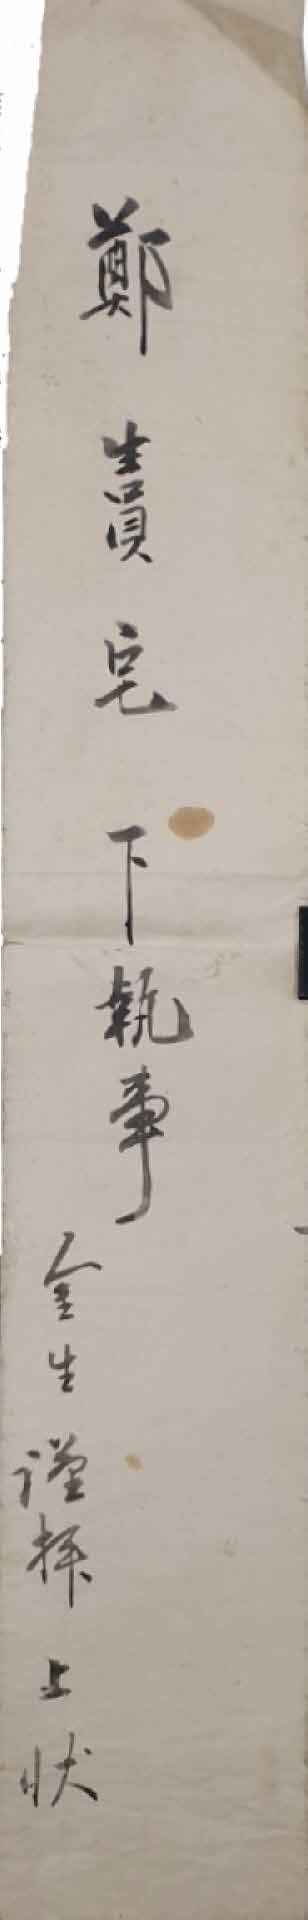 鄭生員宅下執事
金生謹拜上狀